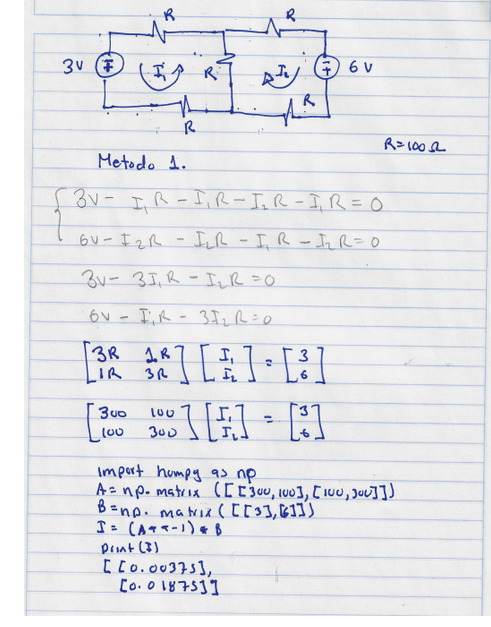 R R
3V I₁ R I₂ 6V
R R
R=100Ω
Metodo 1.
3V - I₁R - I₁R - I₂R - I₁R = 0
6V - I₂R - I₂R - I₁R - I₂R = 0
3V - 3I₁R - I₂R = 0
6V - I₁R - 3I₂R = 0
[3R 1R] [I₁] = [3]
[1R 3R] [I₂] [6]
[300 100] [I₁] = [3]
[100 300] [I₂] [6]
import numpy as np
A = np.matrix ([[300,100],[100,300]])
B = np.matrix ([[3],[6]])
I = (A**-1) * B
print(I)
[[0.00375],
[0.01875]]